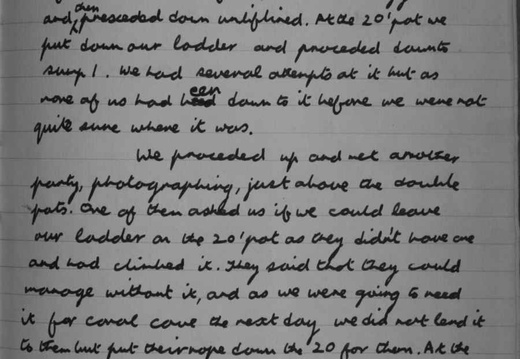 and, then presceded down unliflined. At the 20' pot we
put down our ladder and proceded down to
sump 1. We had several attempts at it but as
none of us had been down to it before we were not
quite sure where it was.
We proceeded up and met another
party, photographing, just above the double
pots. One of them asked us if we could leave
our ladder on the 20' pot as they didn't have one
and had climbed it. They said that they could
manage without it, and as we were going to need
it for coral cave the next day we did not lend it
to them but put their rope down the 20 for them. At the